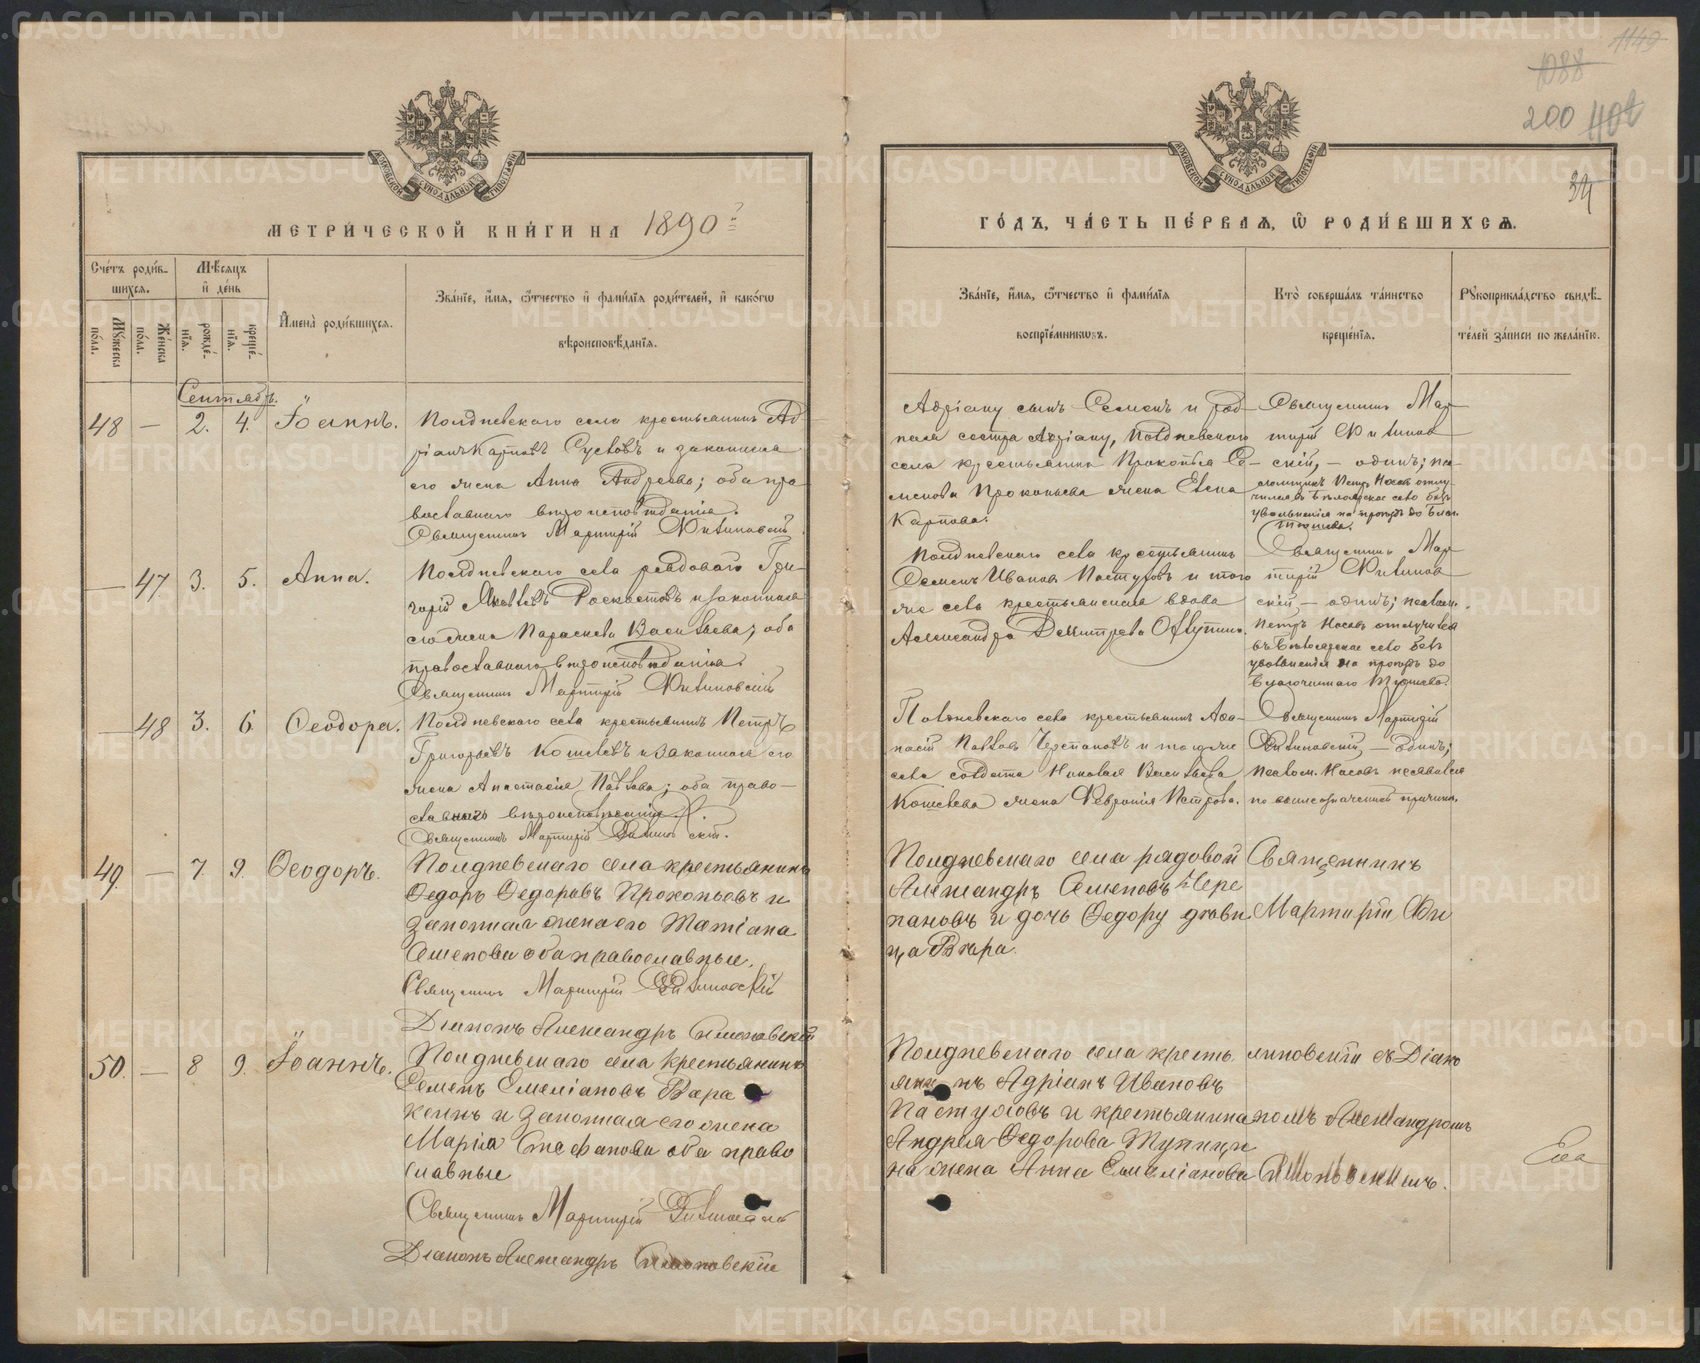 1149
1088
200
34
МЕТРИ́ЧЕСКОЙ КНИ́ГИ НА 1890
ГО́ДЪ, ЧА́СТЬ ПЕ́РВАѦ, Ѽ РОДИ́ВШИХСѦ.
Сче́тъ роди́в-
шихсѧ.
Мѣсѧцъ
и де́нь
Мꙋжеска
по́ла.
Же́нска
по́ла.
рожде́-
нїѧ.
креще́-
нїѧ.
Имена̀ роди́вшихсѧ.
Зва́нїе, и́мѧ, ѻ҆́тчество и фами́лїѧ роди́телей, и како́гѡ
вѣроисповѣ́данїѧ.
Зва́нїе, и́мѧ, ѻ҆́тчество и фами́лїѧ
воспрїе́мникѡвъ.
Кто̀ соверша́лъ та́инство
креще́нїѧ.
Рꙋкоприкла́дство свидѣ́-
телей за́писи по жела́нїю.
Сентябрь.
48 — 2. 4. Іоаннъ.
Полдневскаго села крестьянинъ Ад-
ріанъ Карповъ Сусловъ и законная
его жена Анна Андреева; оба пра-
вославнаго вѣроисповѣданія.
Священникъ Мартирій
Адріану сынъ Семенъ и род-
ная сестра Адріану, Полдневскаго
села крестьянина Прокопья Се-
менова Прокопьева жена Елена
Карпова.
Священникъ Мар-
тирій
скій, — одинъ; пса-
ломщикъ Петръ Носовъ отлу-
чился въ село безъ
увольненія на то
— 47 3. 5. Анна.
Полдневскаго села рядовой Гри-
горій и законная
его жена Параскева Васильева; оба
православнаго вѣроисповѣданія.
Священникъ Мартирій
Полдневскаго села крестьянинъ
Семенъ Ивановъ Пастуховъ и того
же села крестьянская вдова
Александра Димитрева
Священникъ Мар-
тирій
скій, — одинъ; псалом.
Петръ Носовъ отлучился
въ село безъ
увольненія на то
Благочиннаго
— 48 3. 6 Ѳеодора.
Полдневскаго села крестьянинъ Петръ
Григорьевъ Кошевъ и законная его
жена Анастасія Павлова; оба право-
славнаго вѣроисповѣданія.
Священникъ Мартирій
Полдневскаго села крестьянинъ Аѳа-
насій Павловъ Черепановъ и того же
села солдата Николая Васильева
Кошева жена Февронія Петрова.
Священникъ Мартирій
— одинъ;
Псалом. Носовъ не явился
по вышеозначенной причинѣ.
49. — 7. 9. Ѳеодоръ.
Полдневскаго села крестьянинъ
Ѳедоръ Ѳедоровъ Прокопьевъ и
законная жена его Татіана
Семенова оба православные.
Священникъ Мартирій
Діаконъ Александръ
Полдневскаго села рядовой
Александръ Семеновъ Чере
пановъ и дочь Ѳедору дѣви
ца Вѣра.
Священникъ
Мартирій
50. — 8 9. Іоаннъ.
Полдневскаго села крестьянинъ
Семенъ Емеліановъ Вара
кинъ и законная его жена
Марія Стефанова оба право
славные
Священникъ Мартирій
Діаконъ Александръ
Полдневскаго села кресть
янинъ Адріанъ Ивановъ
Пастуховъ и крестьянина
Андрея Ѳедорова Тупицы
на жена Анна Емеліанова
съ Діако
номъ Александромъ
METRIKI.GASO-URAL.RU